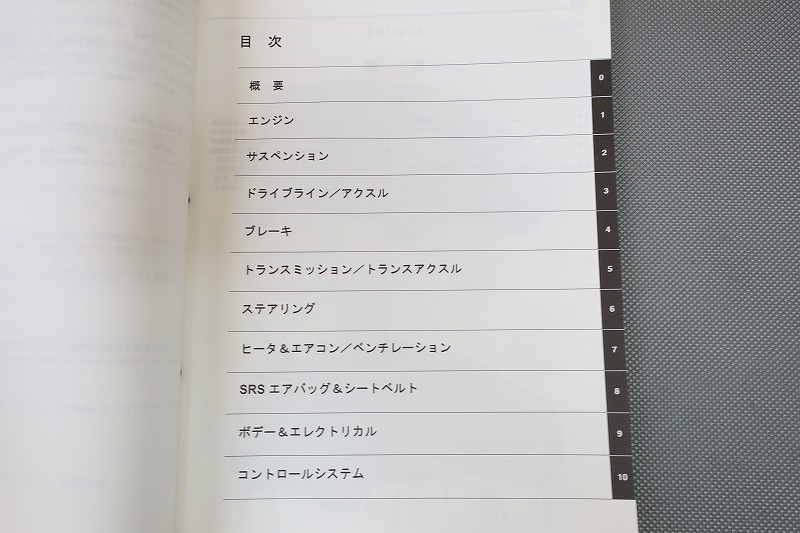 目 次
概 要 0
エンジン 1
サスペンション 2
ドライブライン／アクスル 3
ブレーキ 4
トランスミッション／トランスアクスル 5
ステアリング 6
ヒータ＆エアコン／ベンチレーション 7
SRS エアバッグ＆シートベルト 8
ボデー＆エレクトリカル 9
コントロールシステム 10